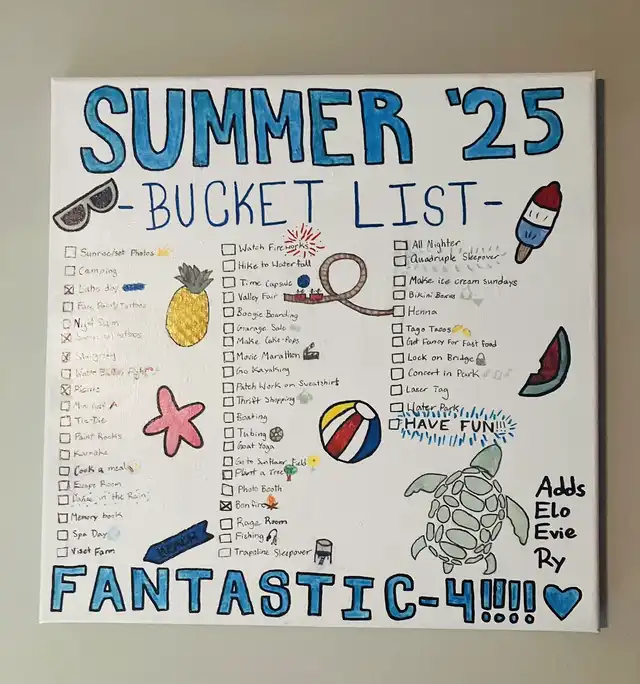 SUMMER '25
-BUCKET LIST-
Sunrise/set Photos
Camping
Lake day
Night Swim
Picnic
Mini Golf
Tie-Die
Paint Rocks
Karaoke
Cook a meal
Escape Room
Dance in the Rain
Memory book
Spa Day
Visit Farm
Watch Fireworks
Hike to Waterfall
Time Capsule
Valley Fair
Boogie Boarding
Garage Sale
Make Cake-Pops
Movie Marathon
Go Kayaking
Patch Work on Sweatshirt
Thrift Shopping
Boating
Tubing
Goat Yoga
Go to Sunflower Field
Plant a Tree
Photo Booth
Bonfire
Rage Room
Fishing
Trampoline Sleepover
All Nighter
Quadruple Sleepover
Make ice cream sundays
Bikini
Henna
Tago Tacos
Get Fancy for Fast food
Lock on Bridge
Concert in Park
Laser Tag
Water Park
HAVE FUN!!!
BEACH
Adds
Elo
Evie
Ry
FANTASTIC-4!!!!